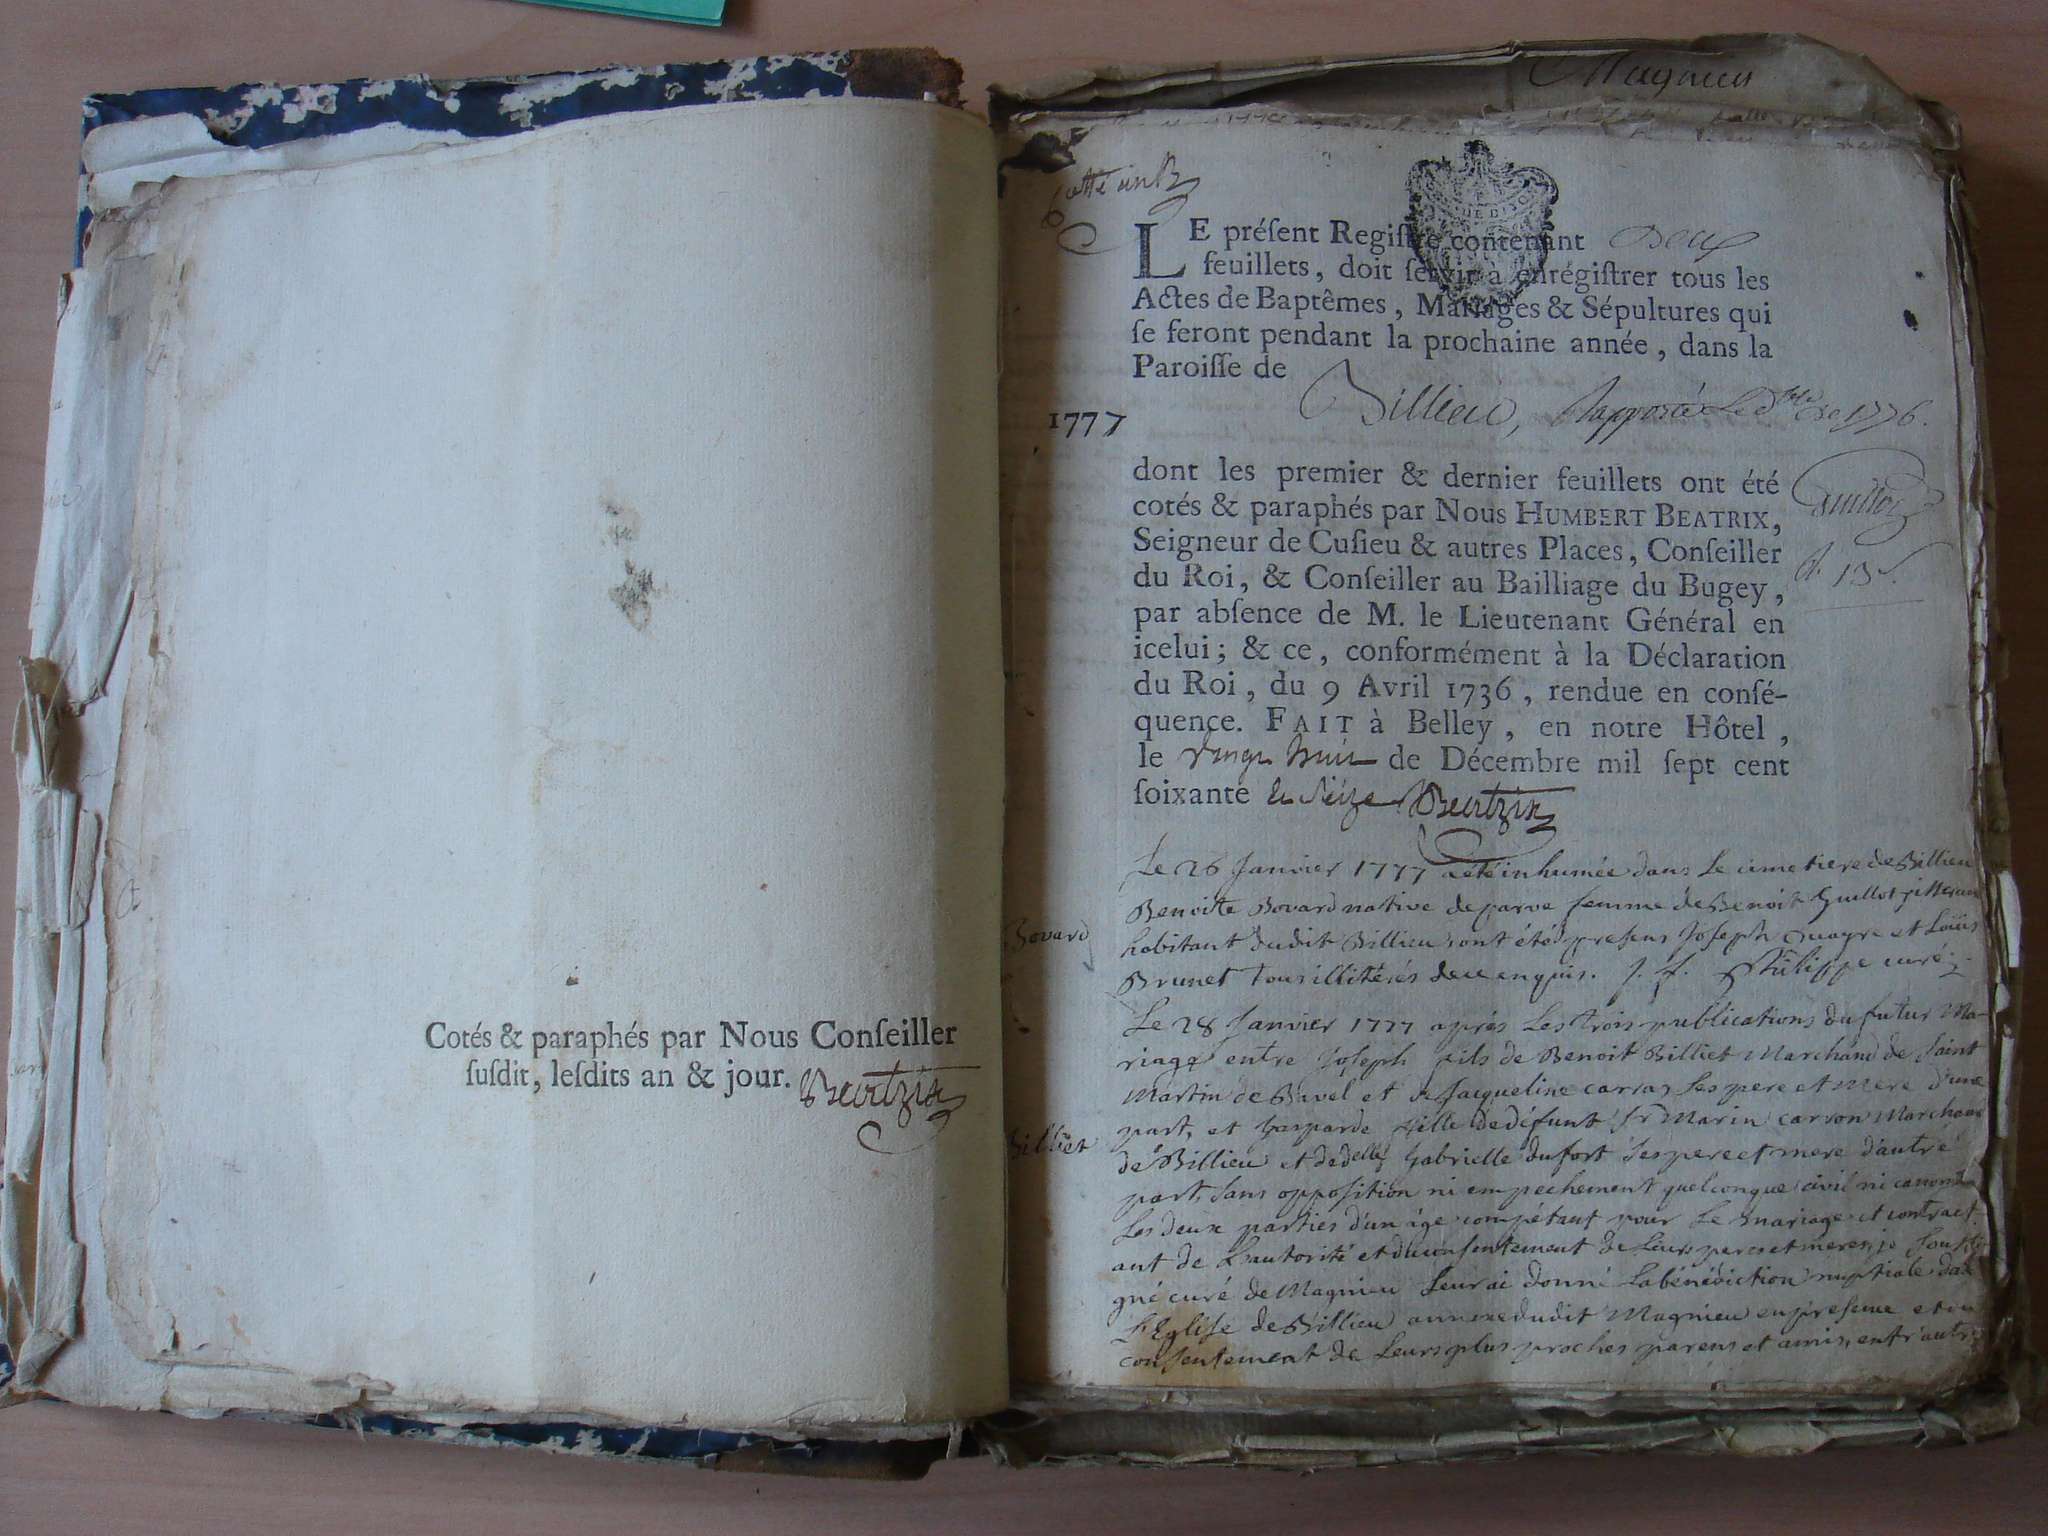 Cotés & paraphés par Nous Conſeiller
ſuſdit, leſdits an & jour. Beatrix
Magnieu
Cotté un B
LE préſent Regiſtre contenant Deux
feuillets, doit ſervir à enrégiſtrer tous les
Actes de Baptêmes, Mariages & Sépultures qui
ſe feront pendant la prochaine année, dans la
Paroiſſe de
Billieu, Rapporté Le de 1776.
1777
dont les premier & dernier feuillets ont été
cotés & paraphés par Nous HUMBERT BEATRIX,
Seigneur de Cuſieu & autres Places, Conſeiller
du Roi, & Conſeiller au Bailliage du Bugey,
par abſence de M. le Lieutenant Général en
icelui; & ce, conformément à la Déclaration
du Roi, du 9 Avril 1736, rendue en conſé-
quence. FAIT à Belley, en notre Hôtel,
le vingt huit de Décembre mil ſept cent
ſoixante & Seize Beatrix
Le 26 Janvier 1777 a été inhumée dans Le cimetiere de Billieu
Benoite Bovard native de parve femme de Benoit Guillot
Bovard
habitant dudit Billieu ont été presens Joseph et Loüis
Brunet Tous illitérés de ce enquis. J. f. Philippe curé
Le 28 Janvier 1777 aprés Les trois publications du futur Ma-
riage entre Joseph fils de Benoit Billiet Marchand de Saint
Martin de Bavel et de Jacqueline carraz Ses pere et mere d'une
part, et Gasparde fille de défunt Sr Marin carron Marchand
Billiet
de Billieu et de delle Gabrielle dufort Ses pere et mere d'autre
part, Sans opposition ni empechement quelconque civil ni canoniq
Les deux parties d'un âge compétant pour Le mariage et contract
ant de L'autorité et du consentement de Leurs peres et meres, je Soussi
gné curé de Magnieu Leur ai donné La bénédiction nuptiale dans
L'Eglise de Billieu annexe dudit Magnieu en présence et du
consentement de Leurs plus proches parens et amis, entr'autres